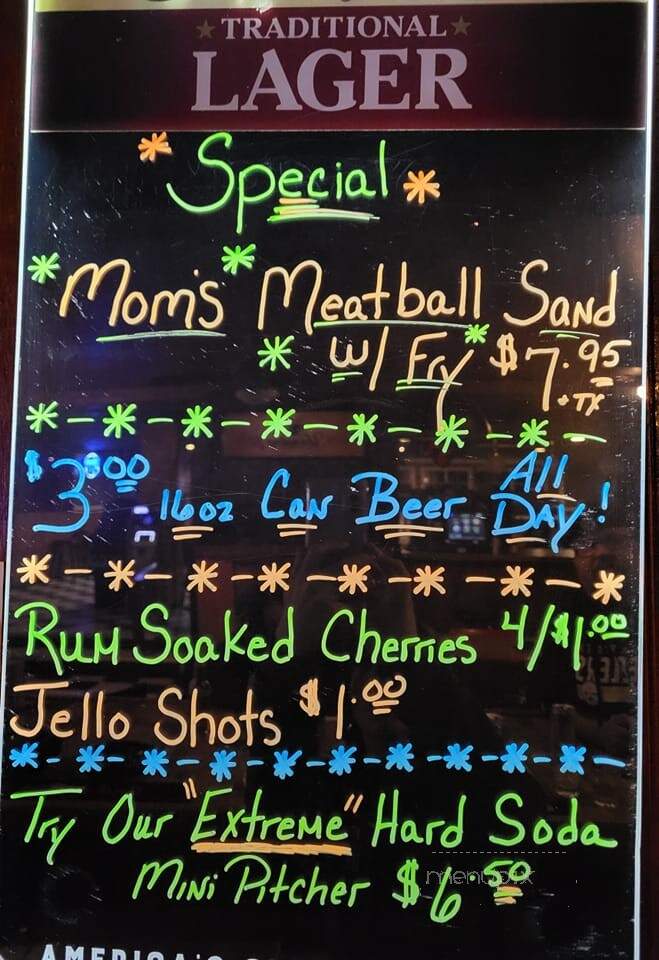 TRADITIONAL
LAGER
Special
Mom's Meatball Sand
w/ Fry $7.95
+TX
$3.00 16oz Can Beer All DAY!
Rum Soaked Cherries 4/$1.00
Jello Shots $1.00
Try Our "Extreme" Hard Soda
Mini Pitcher $6.50
menupix
AMERICA'S